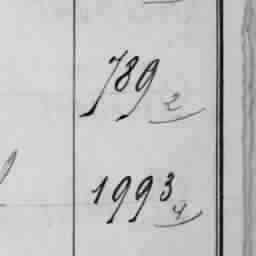 789 2
1993 4